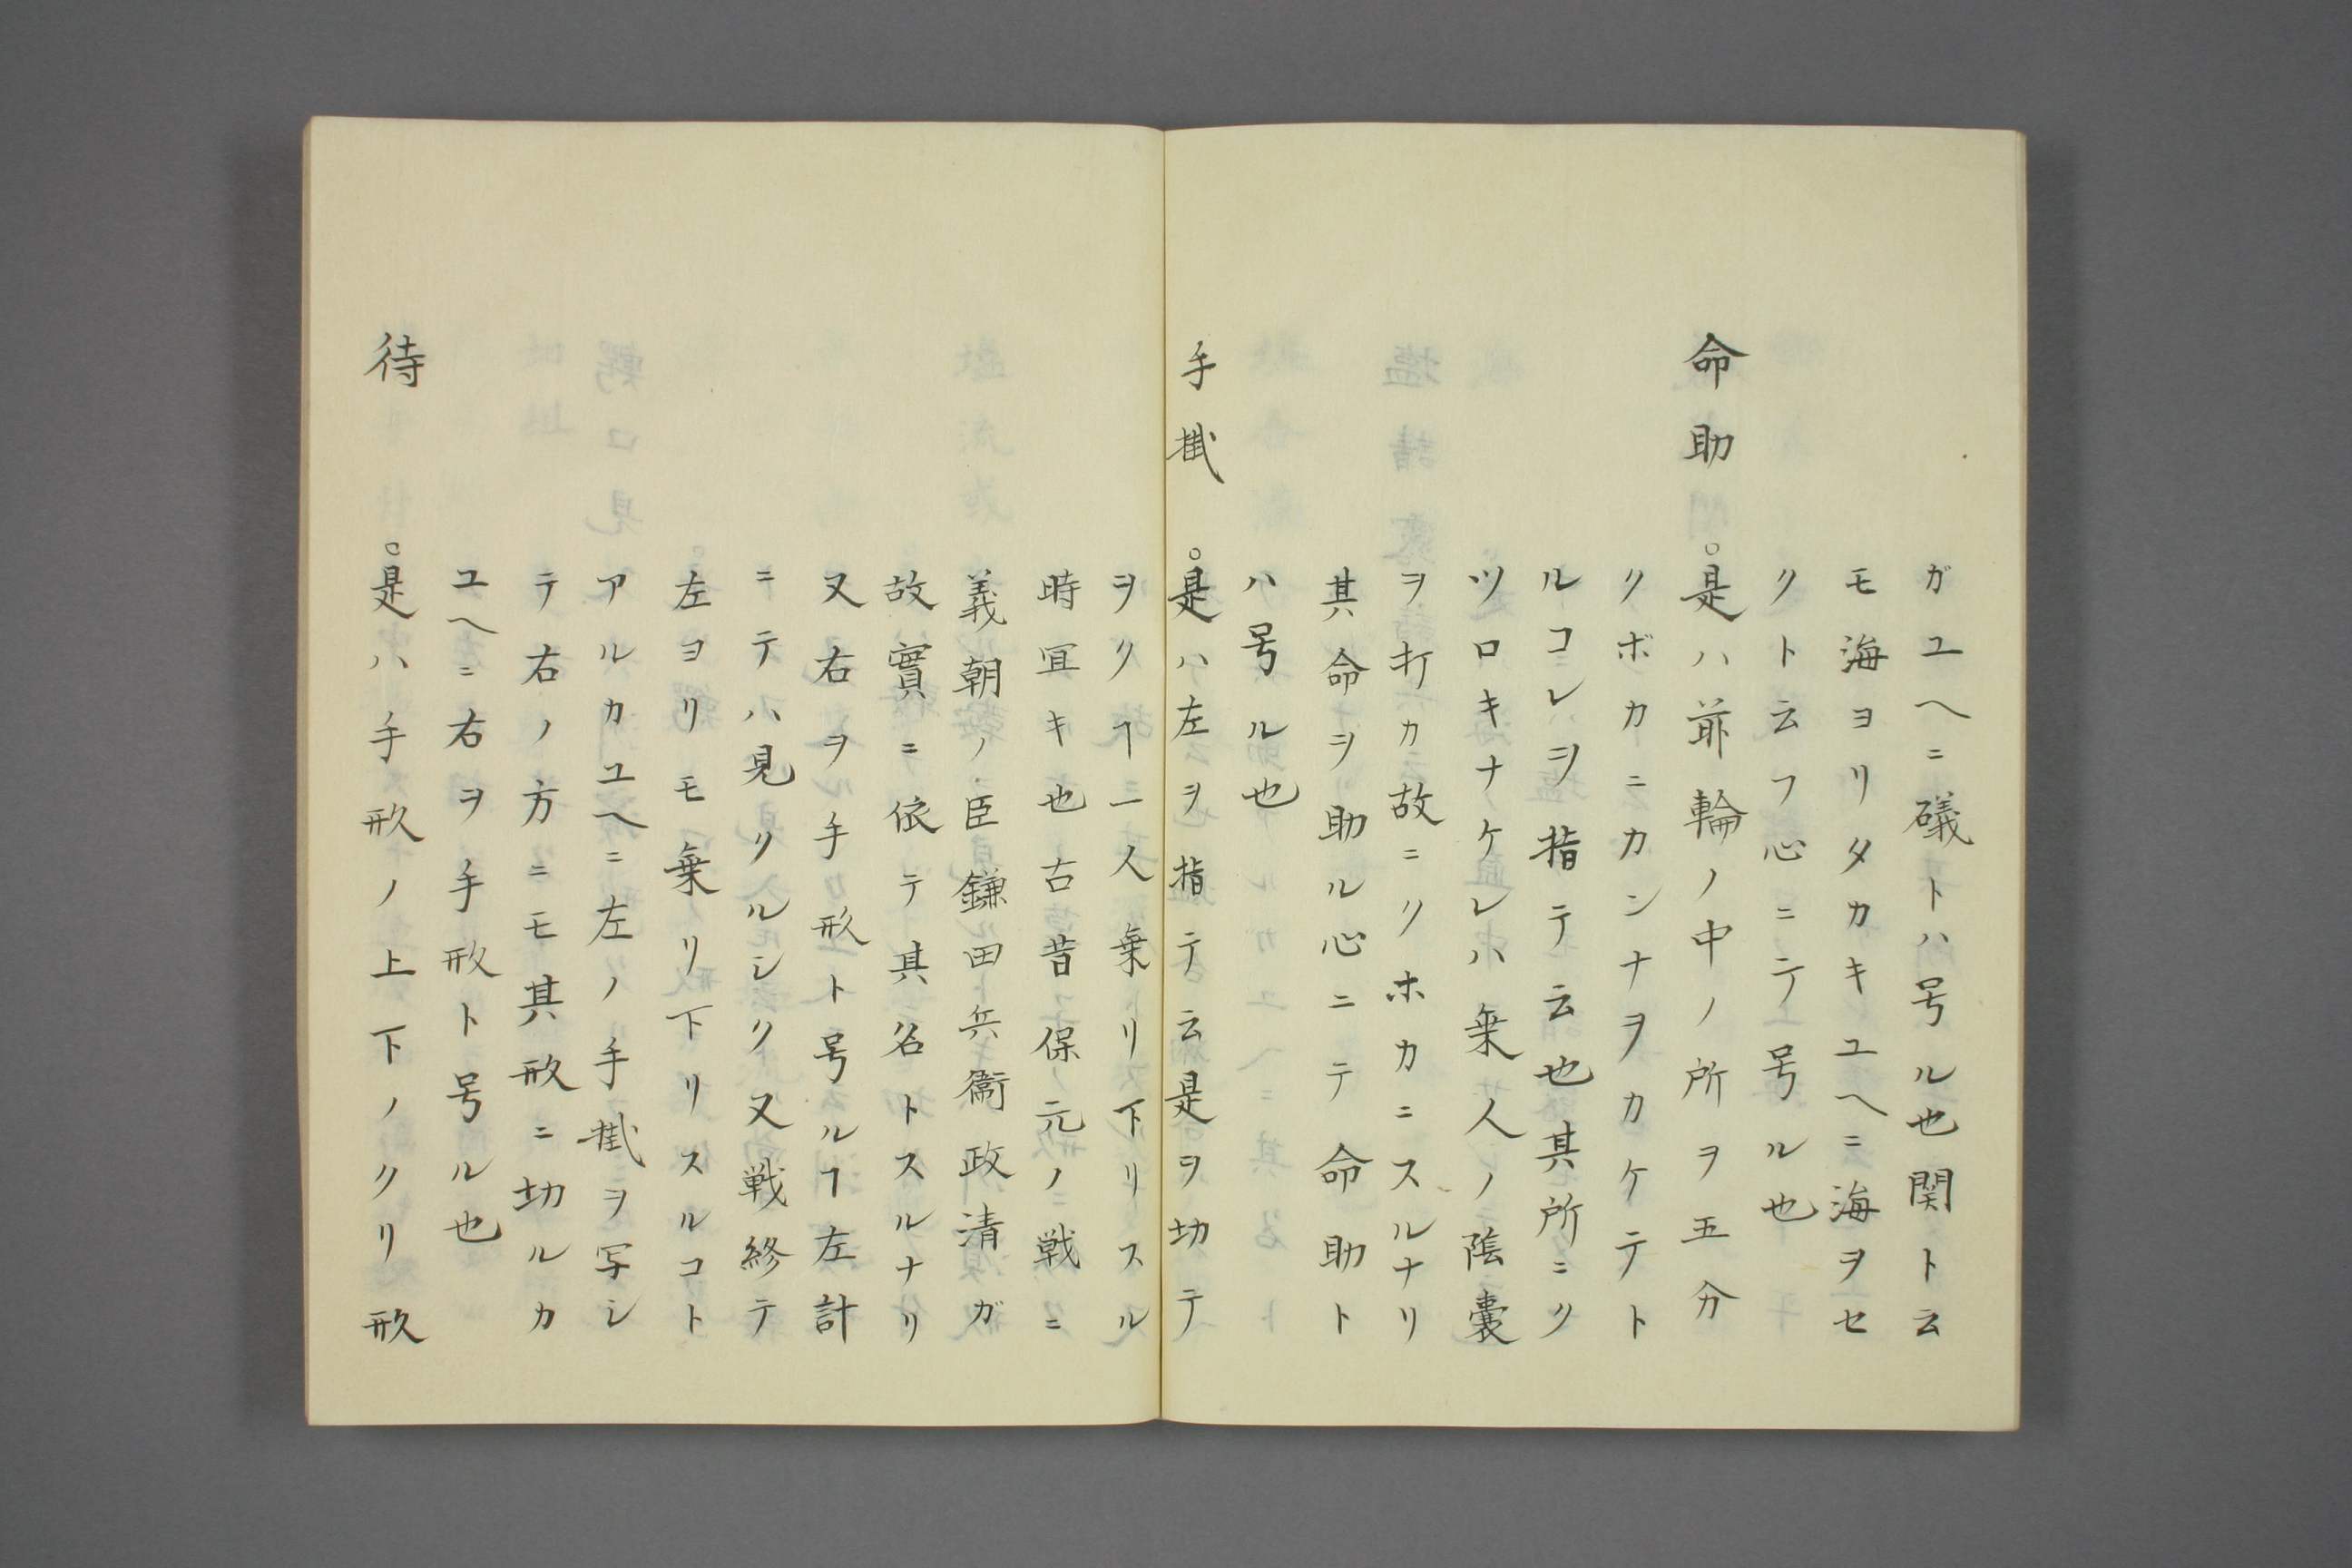 ガユヘニ礒トハ号ル也関ト云
モ海ヨリタカキユヘニ海ヲセ
クト云フ心ニテ号ル也
命助　○是ハ前輪ノ中ノ所ヲ五分
クボカニカンナヲカケテト
ルコレヲ指テ云也其所ニク
ツロキナケレハ乗人ノ陰嚢
ヲ打カ故ニクホカニスルナリ
其命ヲ助ル心ニテ命助ト
ハ号ル也
手掛　○是ハ左ヲ指テ云是ヲ切テ
ヲクヿ一人乗リ下リスル
時冝キ也古昔保元ノ戦ニ
義朝ノ臣鎌田兵衞政清ガ
故實ニ依テ其名トスルナリ
又右ヲ手形ト号ルヿ左計
ニテハ見クルシク又戦終テ
左ヨリモ乗リ下リスルコト
アルカユヘニ左ノ手掛ヲ写シ
テ右ノ方ニモ其形ニ切ルカ
ユヘニ右ヲ手形ト号ル也
待　○是ハ手形ノ上下ノクリ形